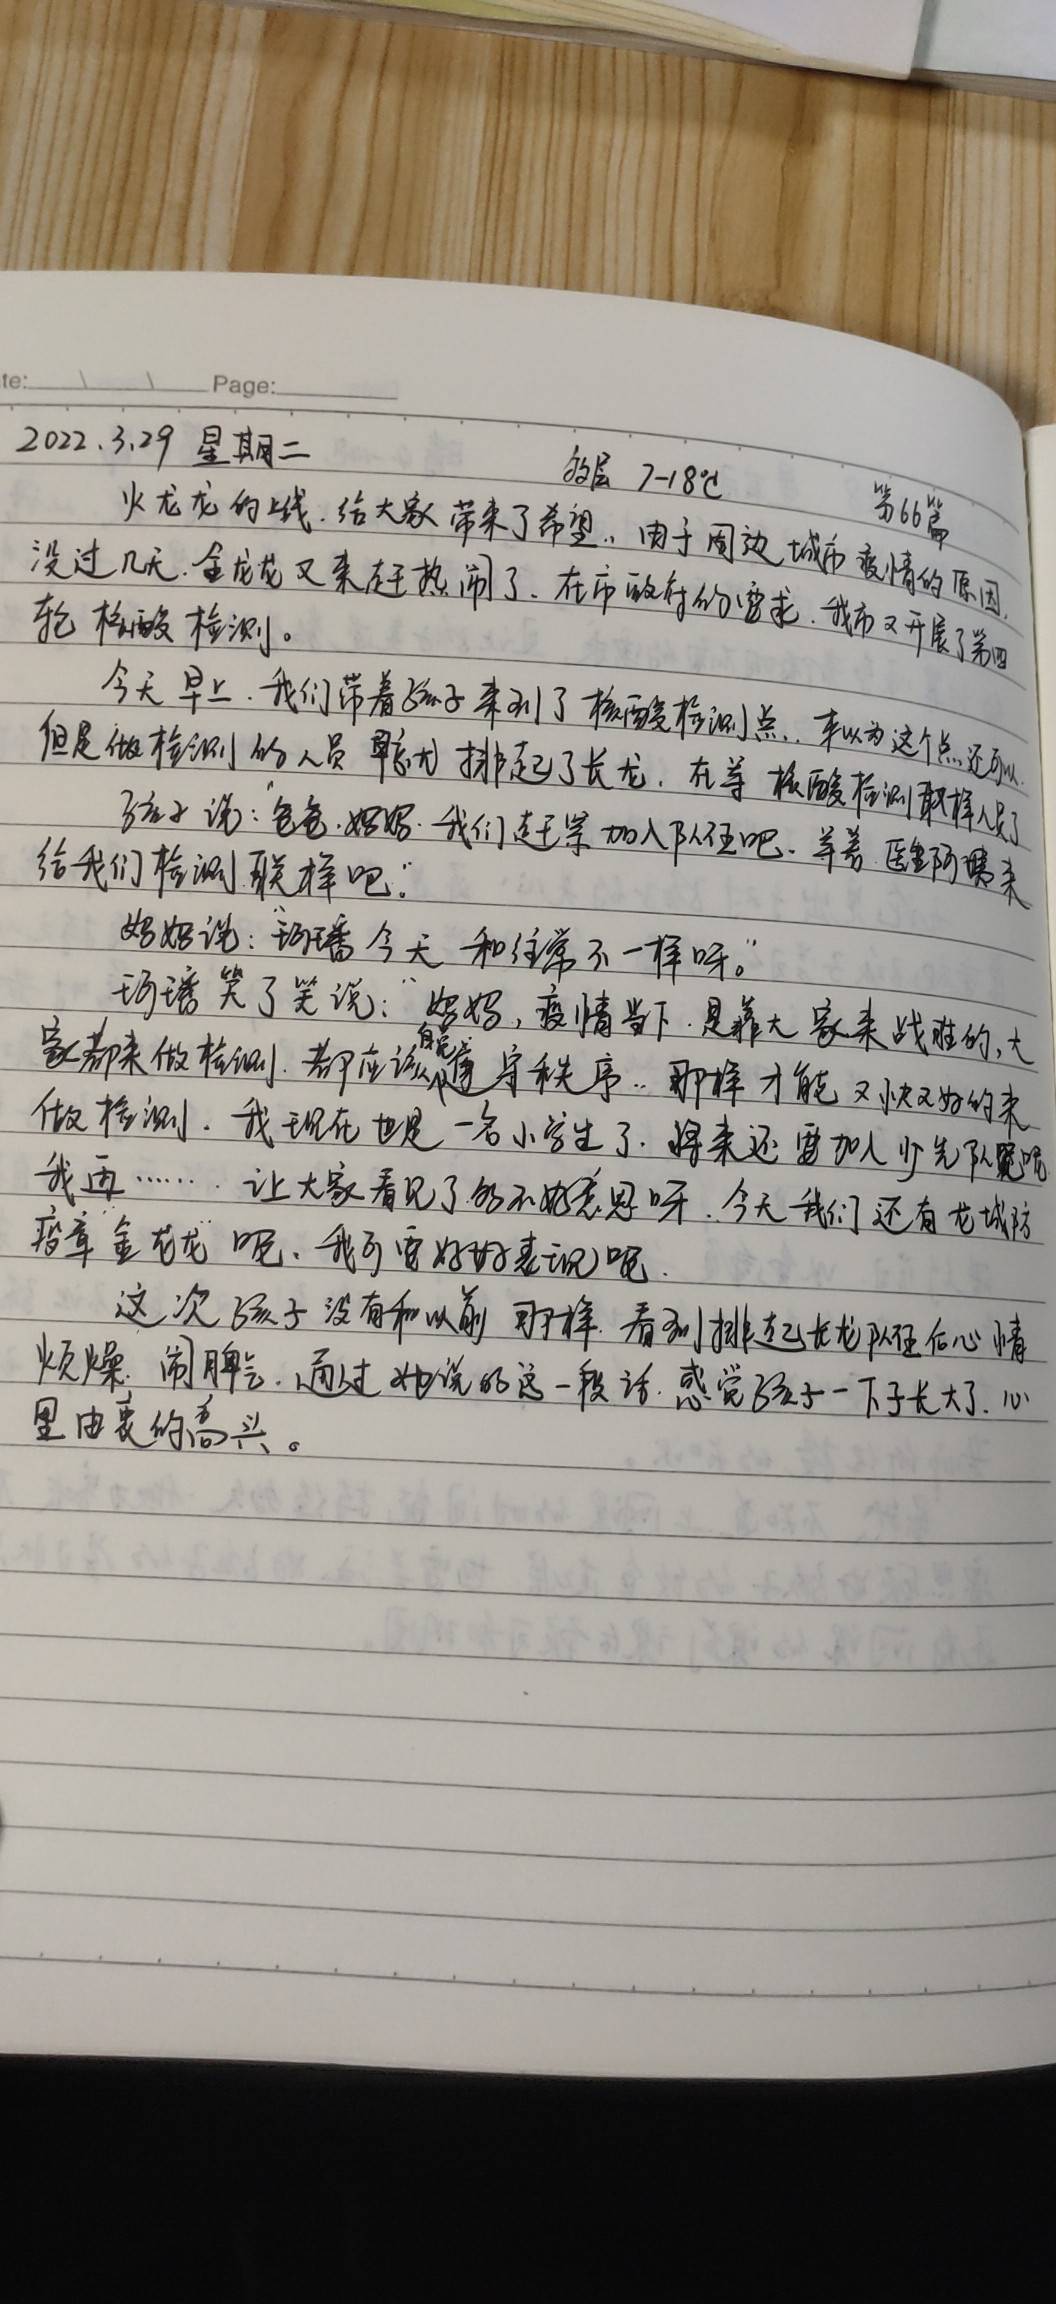 te: Page:
2022.3.29 星期二 多层 7-18℃ 第66篇
火龙龙的上线.给大家带来了希望.,由于周边城市疫情的原因,
没过几天.金龙龙又来赶热闹了.在市政府的要求.我市又开展了第四
轮核酸检测。
今天早上.我们带着孩子来到了核酸检测点.,本以为这个点还可以.
但是做检测的人员 排起了长龙.在等核酸检测取样人员了
孩子说:"爸爸.妈妈.我们赶紧加入队伍吧.等着医生阿姨来
给我们检测取样吧."
妈妈说:"珂璠今天和往常不一样呀。"
珂璠笑了笑说:"妈妈,疫情当下.是靠大家来战胜的,大
家都来做检测.都应该自觉遵守秩序..那样才能又快又好的来
做检测.我现在也是一名小学生了.将来还要加入少先队呢
我再……让大家看见了多不好意思呀.今天我们还有龙城防
疫章"金龙龙"呢.我可要好好表现呢.
这次孩子没有和以前那样.看到排起长龙队伍后心情
烦燥.闹脾气.通过她说的这一段话.感觉孩子一下子长大了.心
里由衷的高兴。